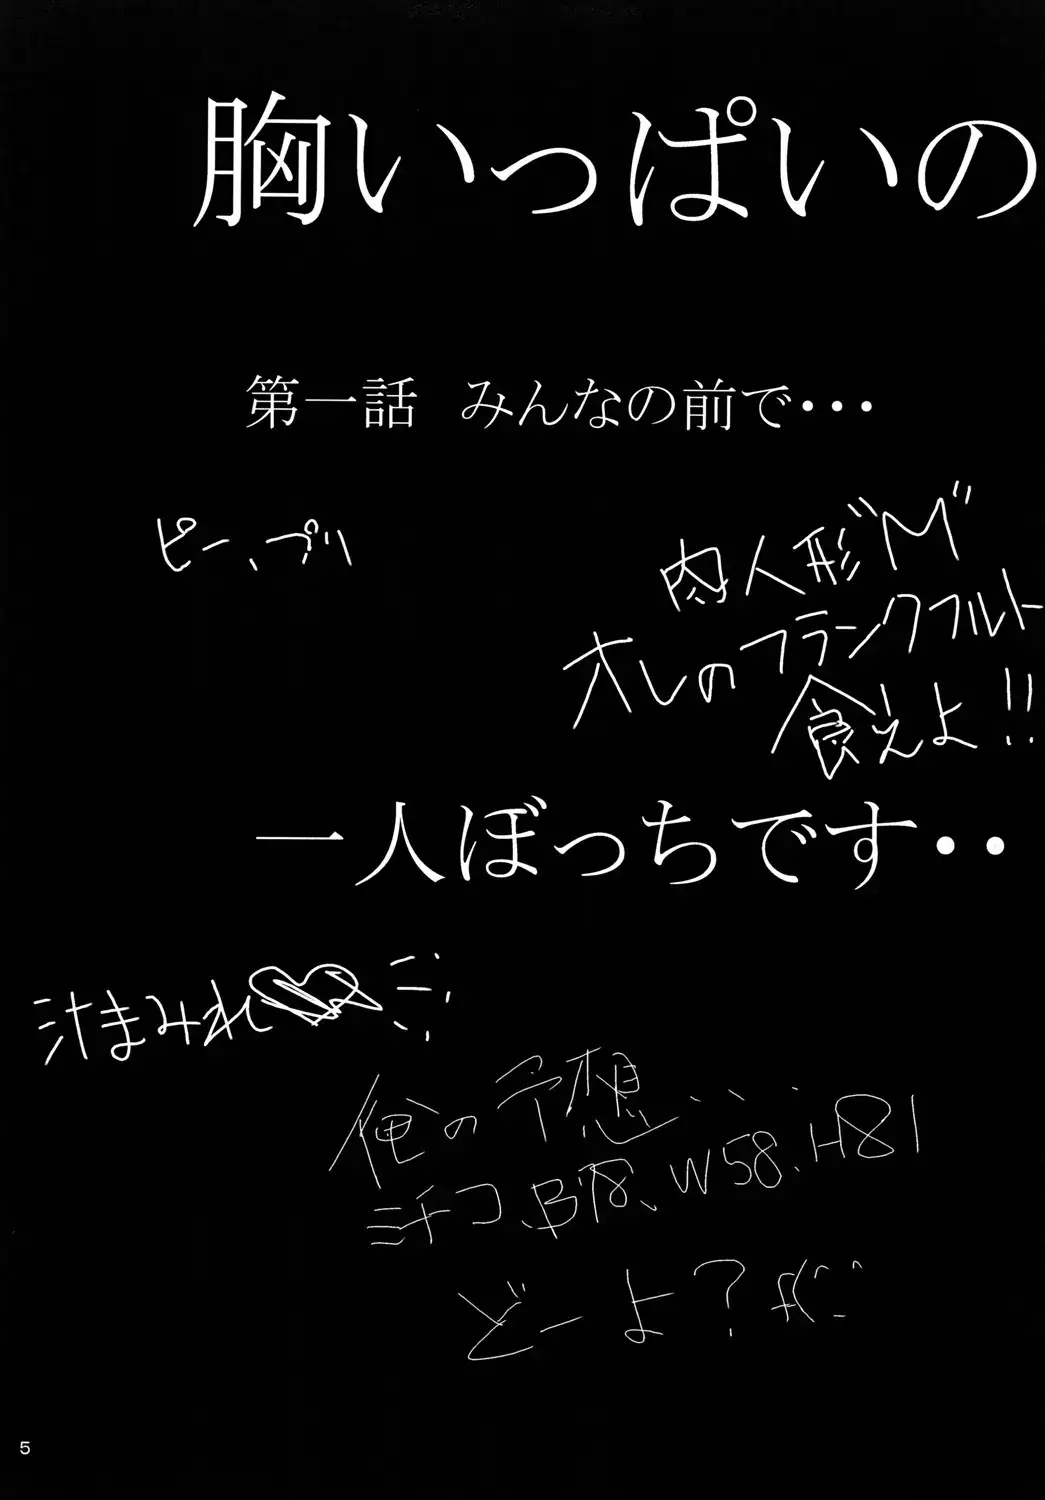 胸いっぱいの
第一話 みんなの前で・・・
ピー、プリ
肉人形"M"
オレのフランクフルト
食えよ!!
一人ぼっちです・・
汁まみれ
俺の予想...
ミチコ、B78、W58、H81
どーよ?
5